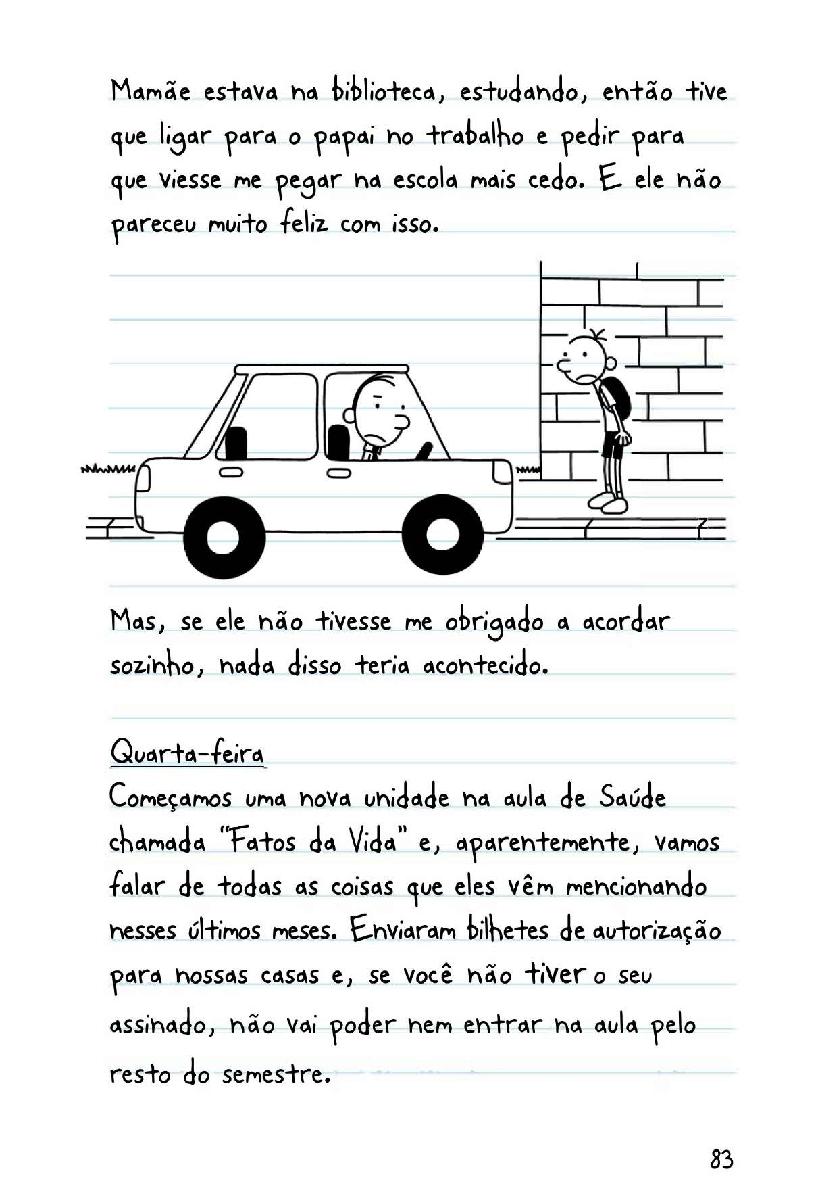 Mamãe estava na biblioteca, estudando, então tive
que ligar para o papai no trabalho e pedir para
que viesse me pegar na escola mais cedo. E ele não
pareceu muito feliz com isso.
Mas, se ele não tivesse me obrigado a acordar
sozinho, nada disso teria acontecido.
Quarta-feira
Começamos uma nova unidade na aula de Saúde
chamada "Fatos da Vida" e, aparentemente, vamos
falar de todas as coisas que eles vêm mencionando
nesses últimos meses. Enviaram bilhetes de autorização
para nossas casas e, se você não tiver o seu
assinado, não vai poder nem entrar na aula pelo
resto do semestre.
83